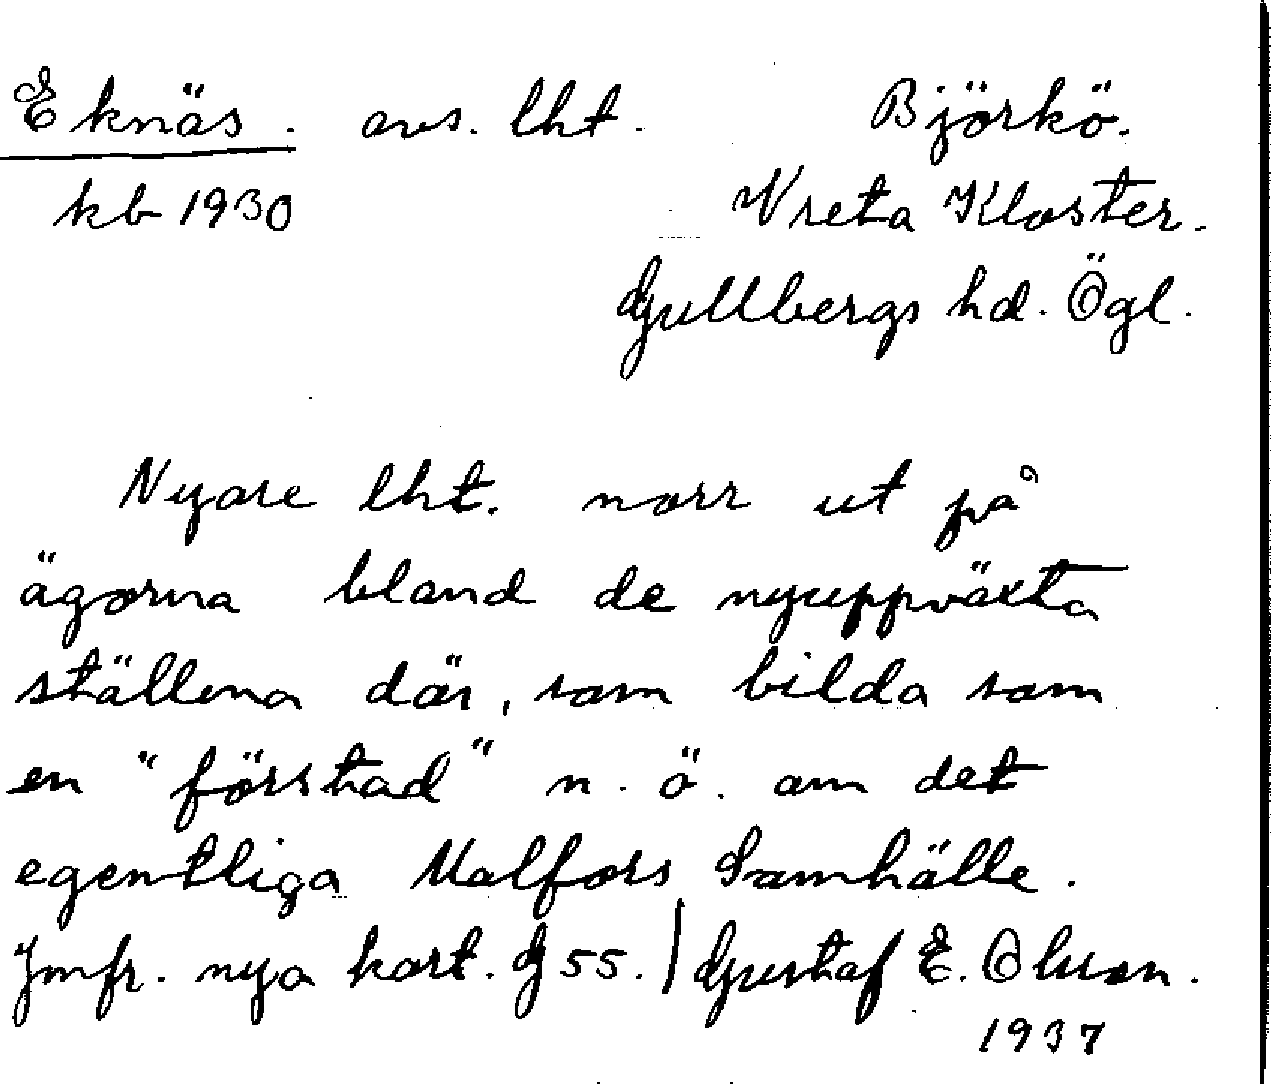 Eknäs. avs. lht. Björkö.
kb 1930 Vreta Kloster.
Gullbergs hd. Ögl.
Nyare lht. norr ut på
ägorna bland de nyuppväxta
ställena där, som bilda som
en "förstad" n. ö. om det
egentliga Malfors Samhälle.
Jmfr. nya kart. G 55. | Gustaf E. Olsson.
1937